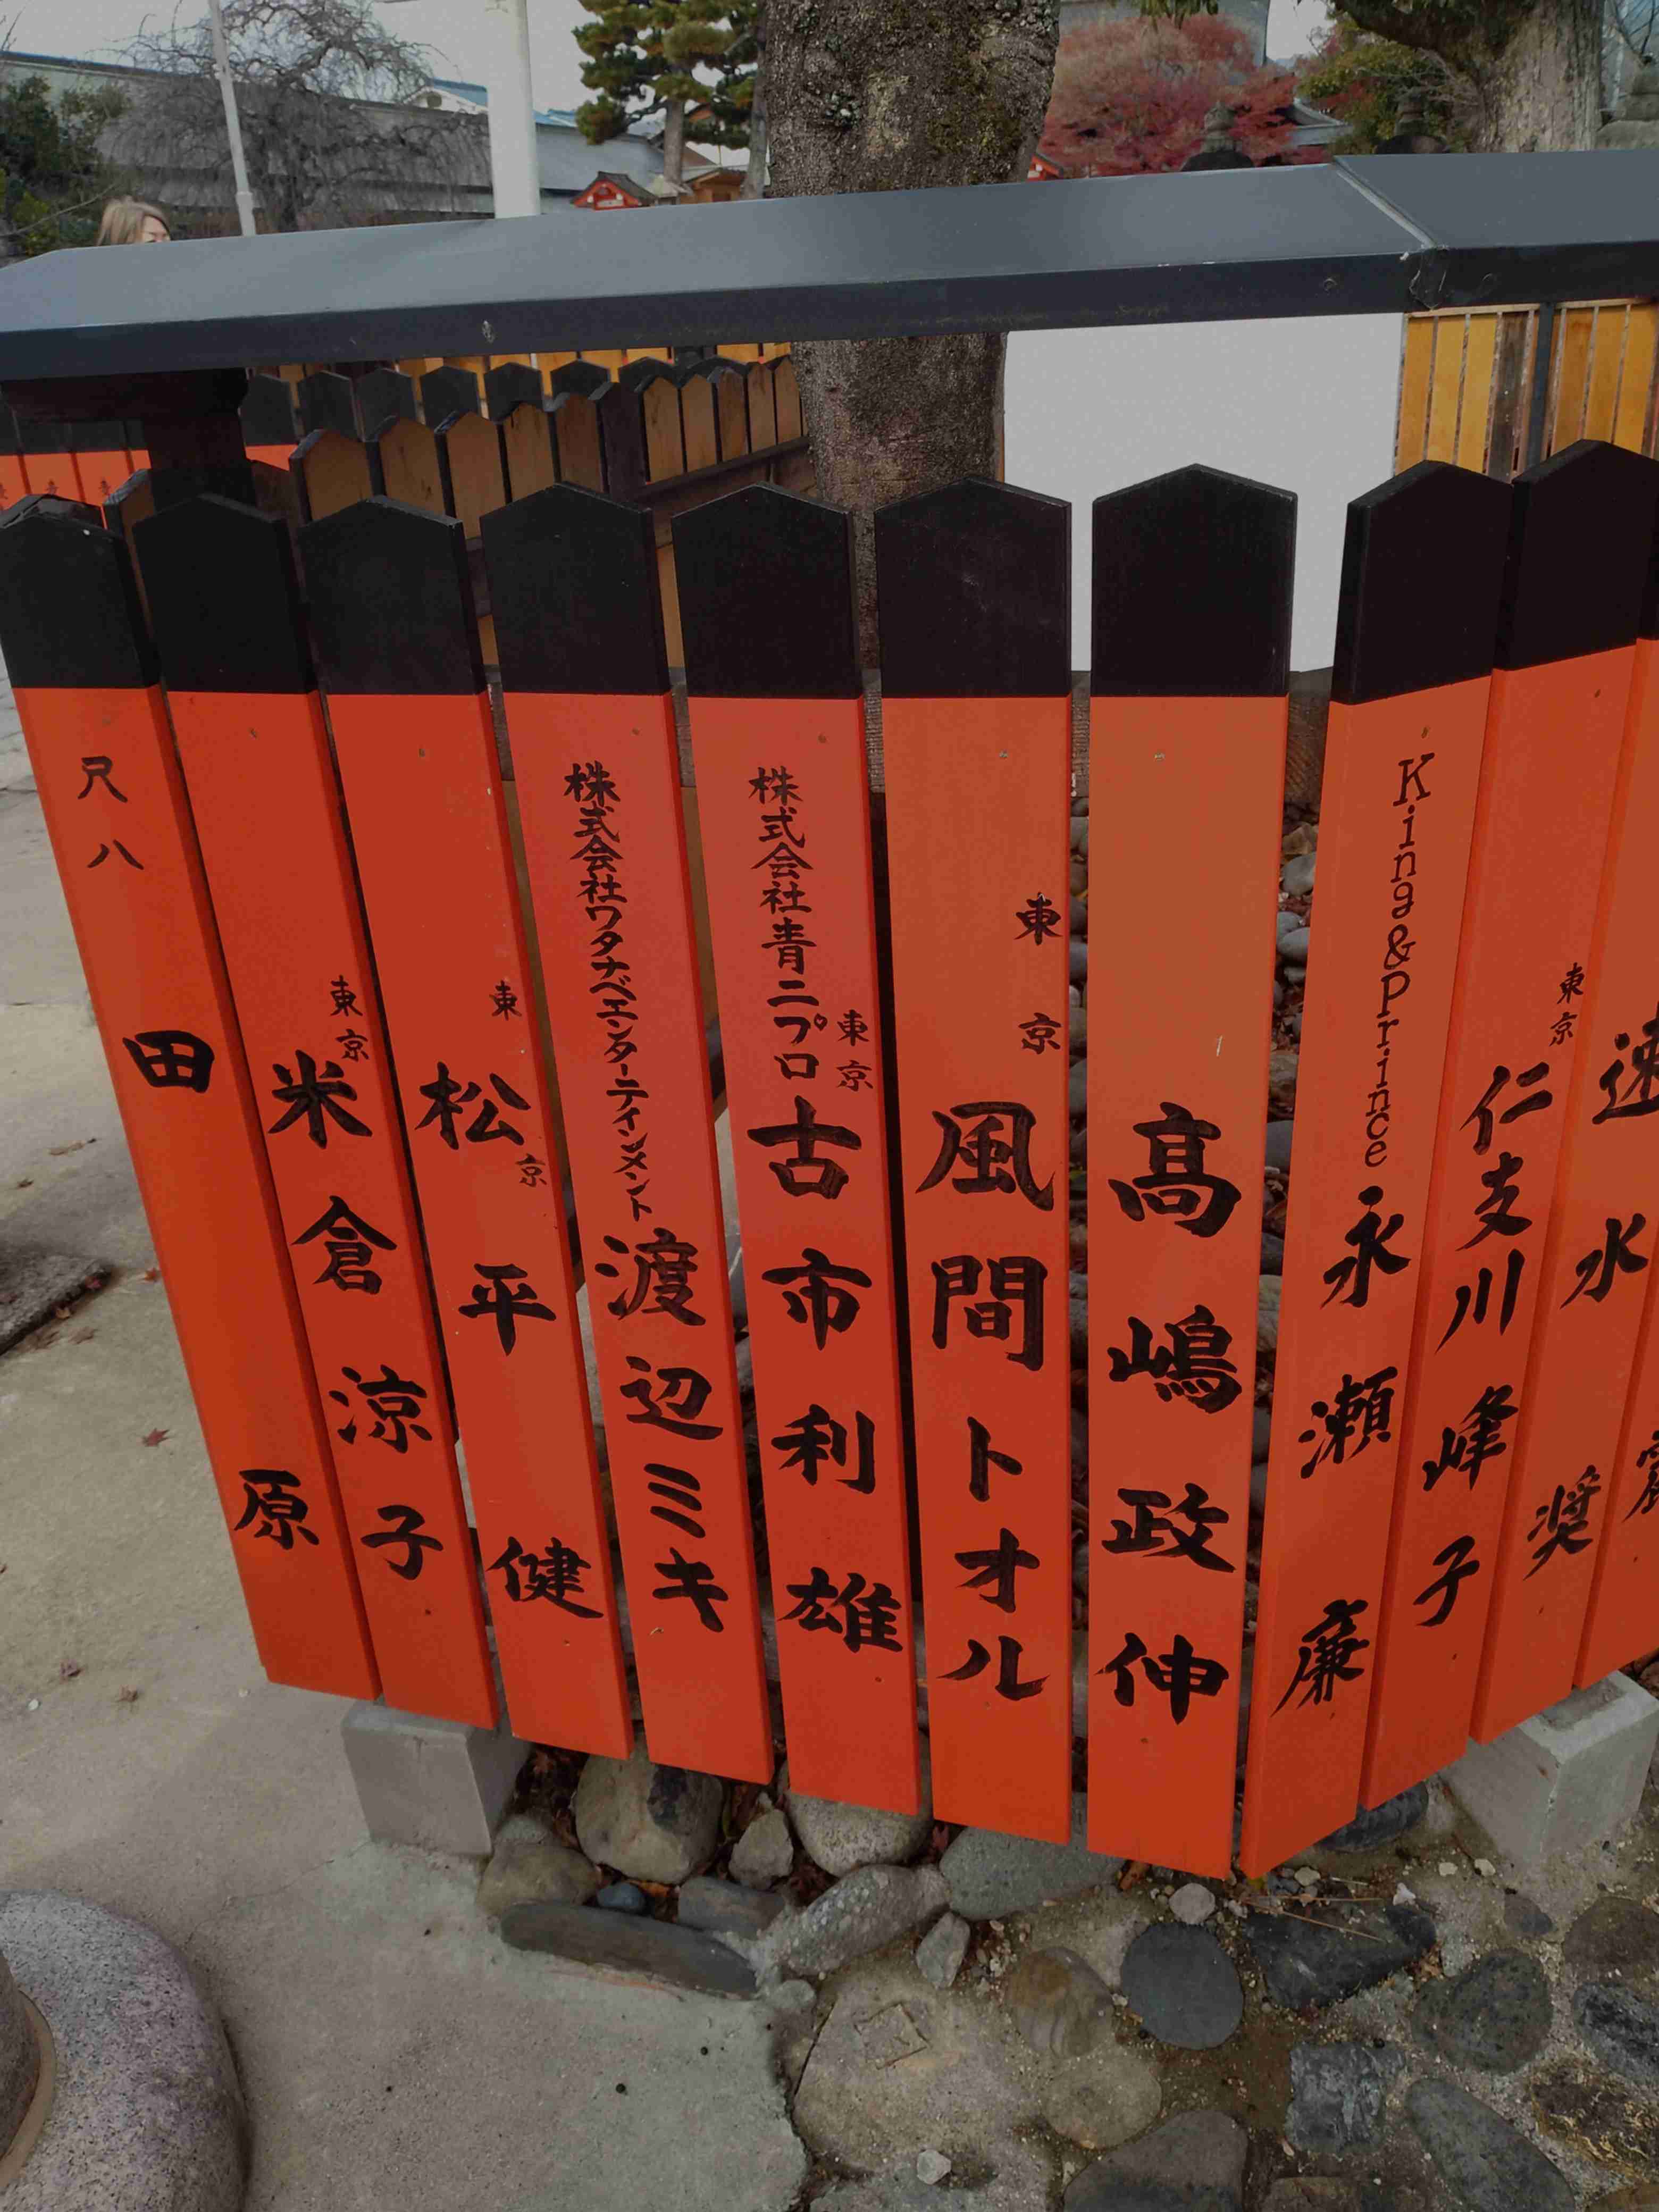 尺八 田原
東京 米倉涼子
東京 松平健
株式会社ワタナベエンターテインメント 渡辺ミキ
株式会社青二プロ 東京 古市利雄
東京 風間トオル
髙嶋政伸
King&Prince 永瀬廉
東京 仁支川峰子
速水奨